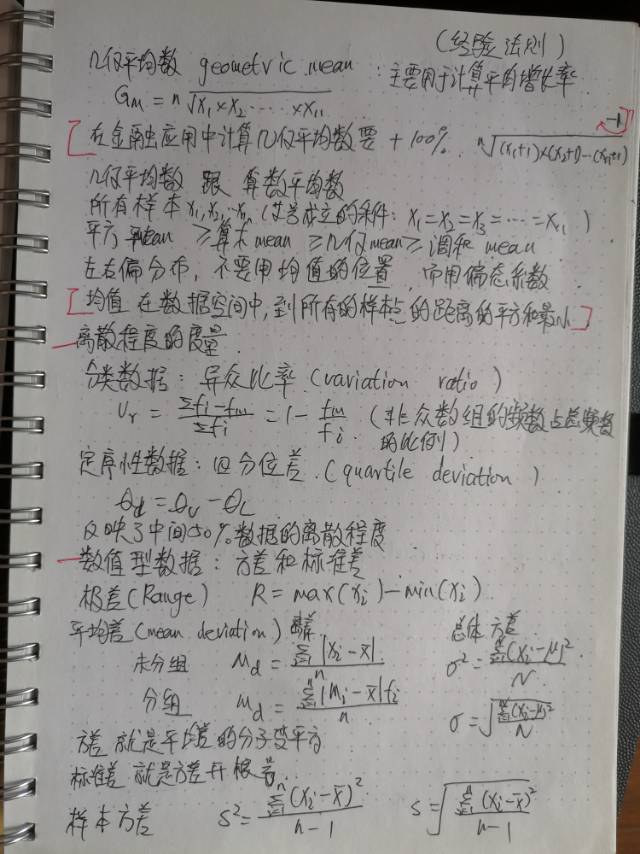 (经验法则)
几何平均数 geometric mean : 主要用于计算平均增长率
Gm = n√x₁×x₂……×x₁₁
-1
[在金融应用中计算几何平均数要 + 100%. n√(x₁+1)×(x₂+1)…(x₁₁+1)]
几何平均数 跟 算数平均数
所有样本 x₁,x₂,…xₙ (艾号成立的条件: x₁=x₂=x₃=……=x₁₁)
平方 mean ≥ 算术 mean ≥ 几何 mean ≥ 调和 mean
左右偏分布, 不要用均值的位置, 而用偏态系数
[均值 在数据空间中, 到所有的样本点的距离的平方和最小]
一离散程度的度量
分类数据: 异众比率 (variation ratio)
Vr = Σfi-fm/Σfi = 1 - fm/fi (非众数组的频数占总频数的比例)
定序性数据: 四分位差. (quartile deviation)
Qd = QU - QL
反映了中间50%数据的离散程度
一数值型数据: 方差和标准差
极差(Range) R = max(xi) - min(xi)
平均差(mean deviation) 总体方差
未分组 Md = Σ|xi-x̄|/n σ² = Σ(xi-μ)²/N
分组 Md = Σ|Mi-x̄|fi/n σ = √Σ(xi-μ)²/N
方差 就是平均差的分子变平方
标准差 就是方差开根号
样本方差 s² = Σ(xi-x̄)²/n-1 s = √Σ(xi-x̄)²/n-1